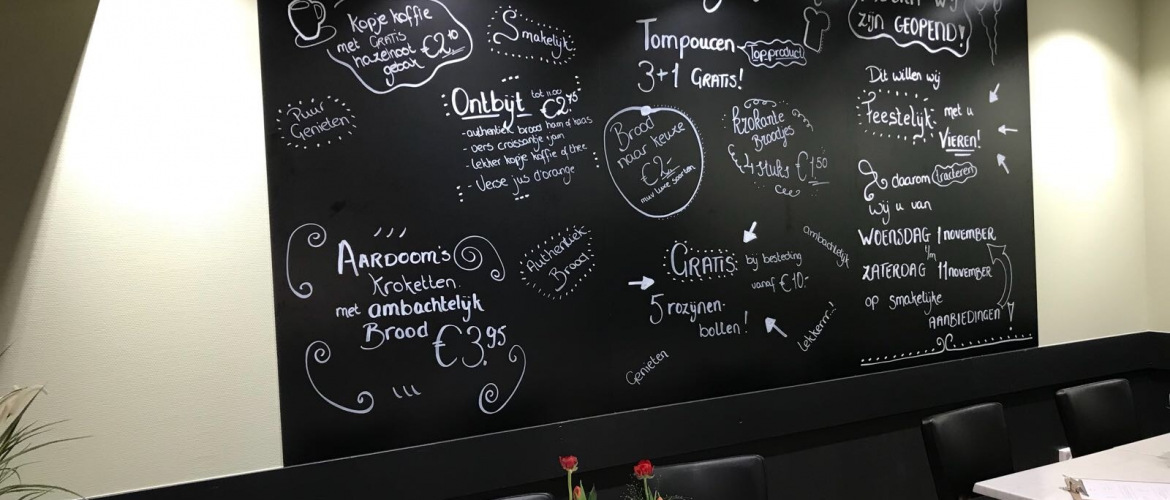 Kopje koffie
met GRATIS
hazelnoot
gebak €2.10
Smakelijk
Puur
Genieten
Ontbijt tot 11.00 €2.95
- authentiek brood ham of kaas
- vers croissantje jam
- lekker kopje koffie of thee
- Verse jus d'orange
AARDOOM'S
Kroketten
met ambachtelijk
Brood €3,95
Authentiek
Brood
Tompoucen Topproduct
3+1 GRATIS!
Brood
naar keuze
€2,-
Krokante
Broodjes
4 stuks €1.50
GRATIS: bij besteding
vanaf €10.-
5 rozijnen-
bollen!
ambachtelijk
lekkerrr..!
Genieten
wij
zijn GEOPEND!
Dit willen wij
Feestelijk met u
VIEREN!
daarom tracteren
wij u van
WOENSDAG 1 NOVEMBER
t/m
ZATERDAG 11 NOVEMBER
op smakelijke
AANBIEDINGEN!